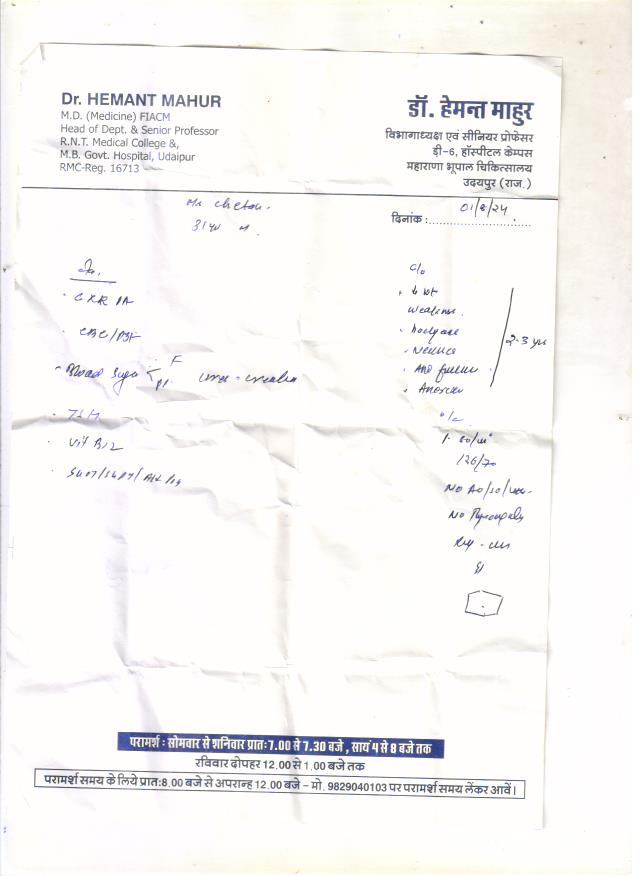 Dr. HEMANT MAHUR
M.D. (Medicine) FIACM
Head of Dept. & Senior Professor
R.N.T. Medical College &,
M.B. Govt. Hospital, Udaipur
RMC-Reg. 16713
डॉ. हेमन्त माहुर
विभागाध्यक्ष एवं सीनियर प्रोफेसर
डी-6, हॉस्पीटल केम्पस
महाराणा भूपाल चिकित्सालय
उदयपुर (राज.)
दिनांक : 01/8/24
Mr Chetan
31 yr M
CXR PA
CBC/PBF
Blood Sugar F
TSH
Vit B12
SGOT/SGPT/
c/o
↓ wt
weakness
Nausea
Anorexia
2-3 yr
o/e
P. 80/m
126/70
No
No
परामर्श : सोमवार से शनिवार प्रातः 7.00 से 7.30 बजे , सायं 4 से 8 बजे तक
रविवार दोपहर 12.00 से 1.00 बजे तक
परामर्श समय के लिये प्रातः 8.00 बजे से अपरान्ह 12.00 बजे - मो. 9829040103 पर परामर्श समय लेंकर आवें।